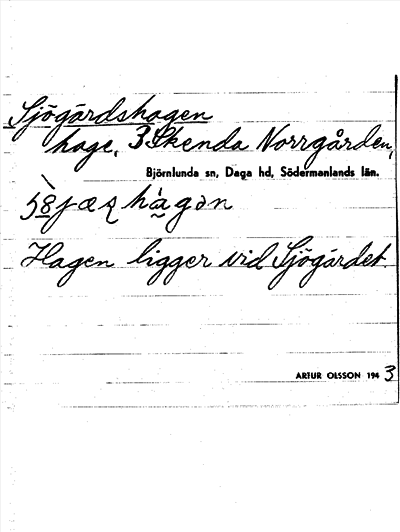 Sjögärdshagen
hage, 3 Skenda Norrgården,
Björnlunda sn, Daga hd, Södermanlands län.
Hagen ligger vid Sjögärdet.
ARTUR OLSSON 1943